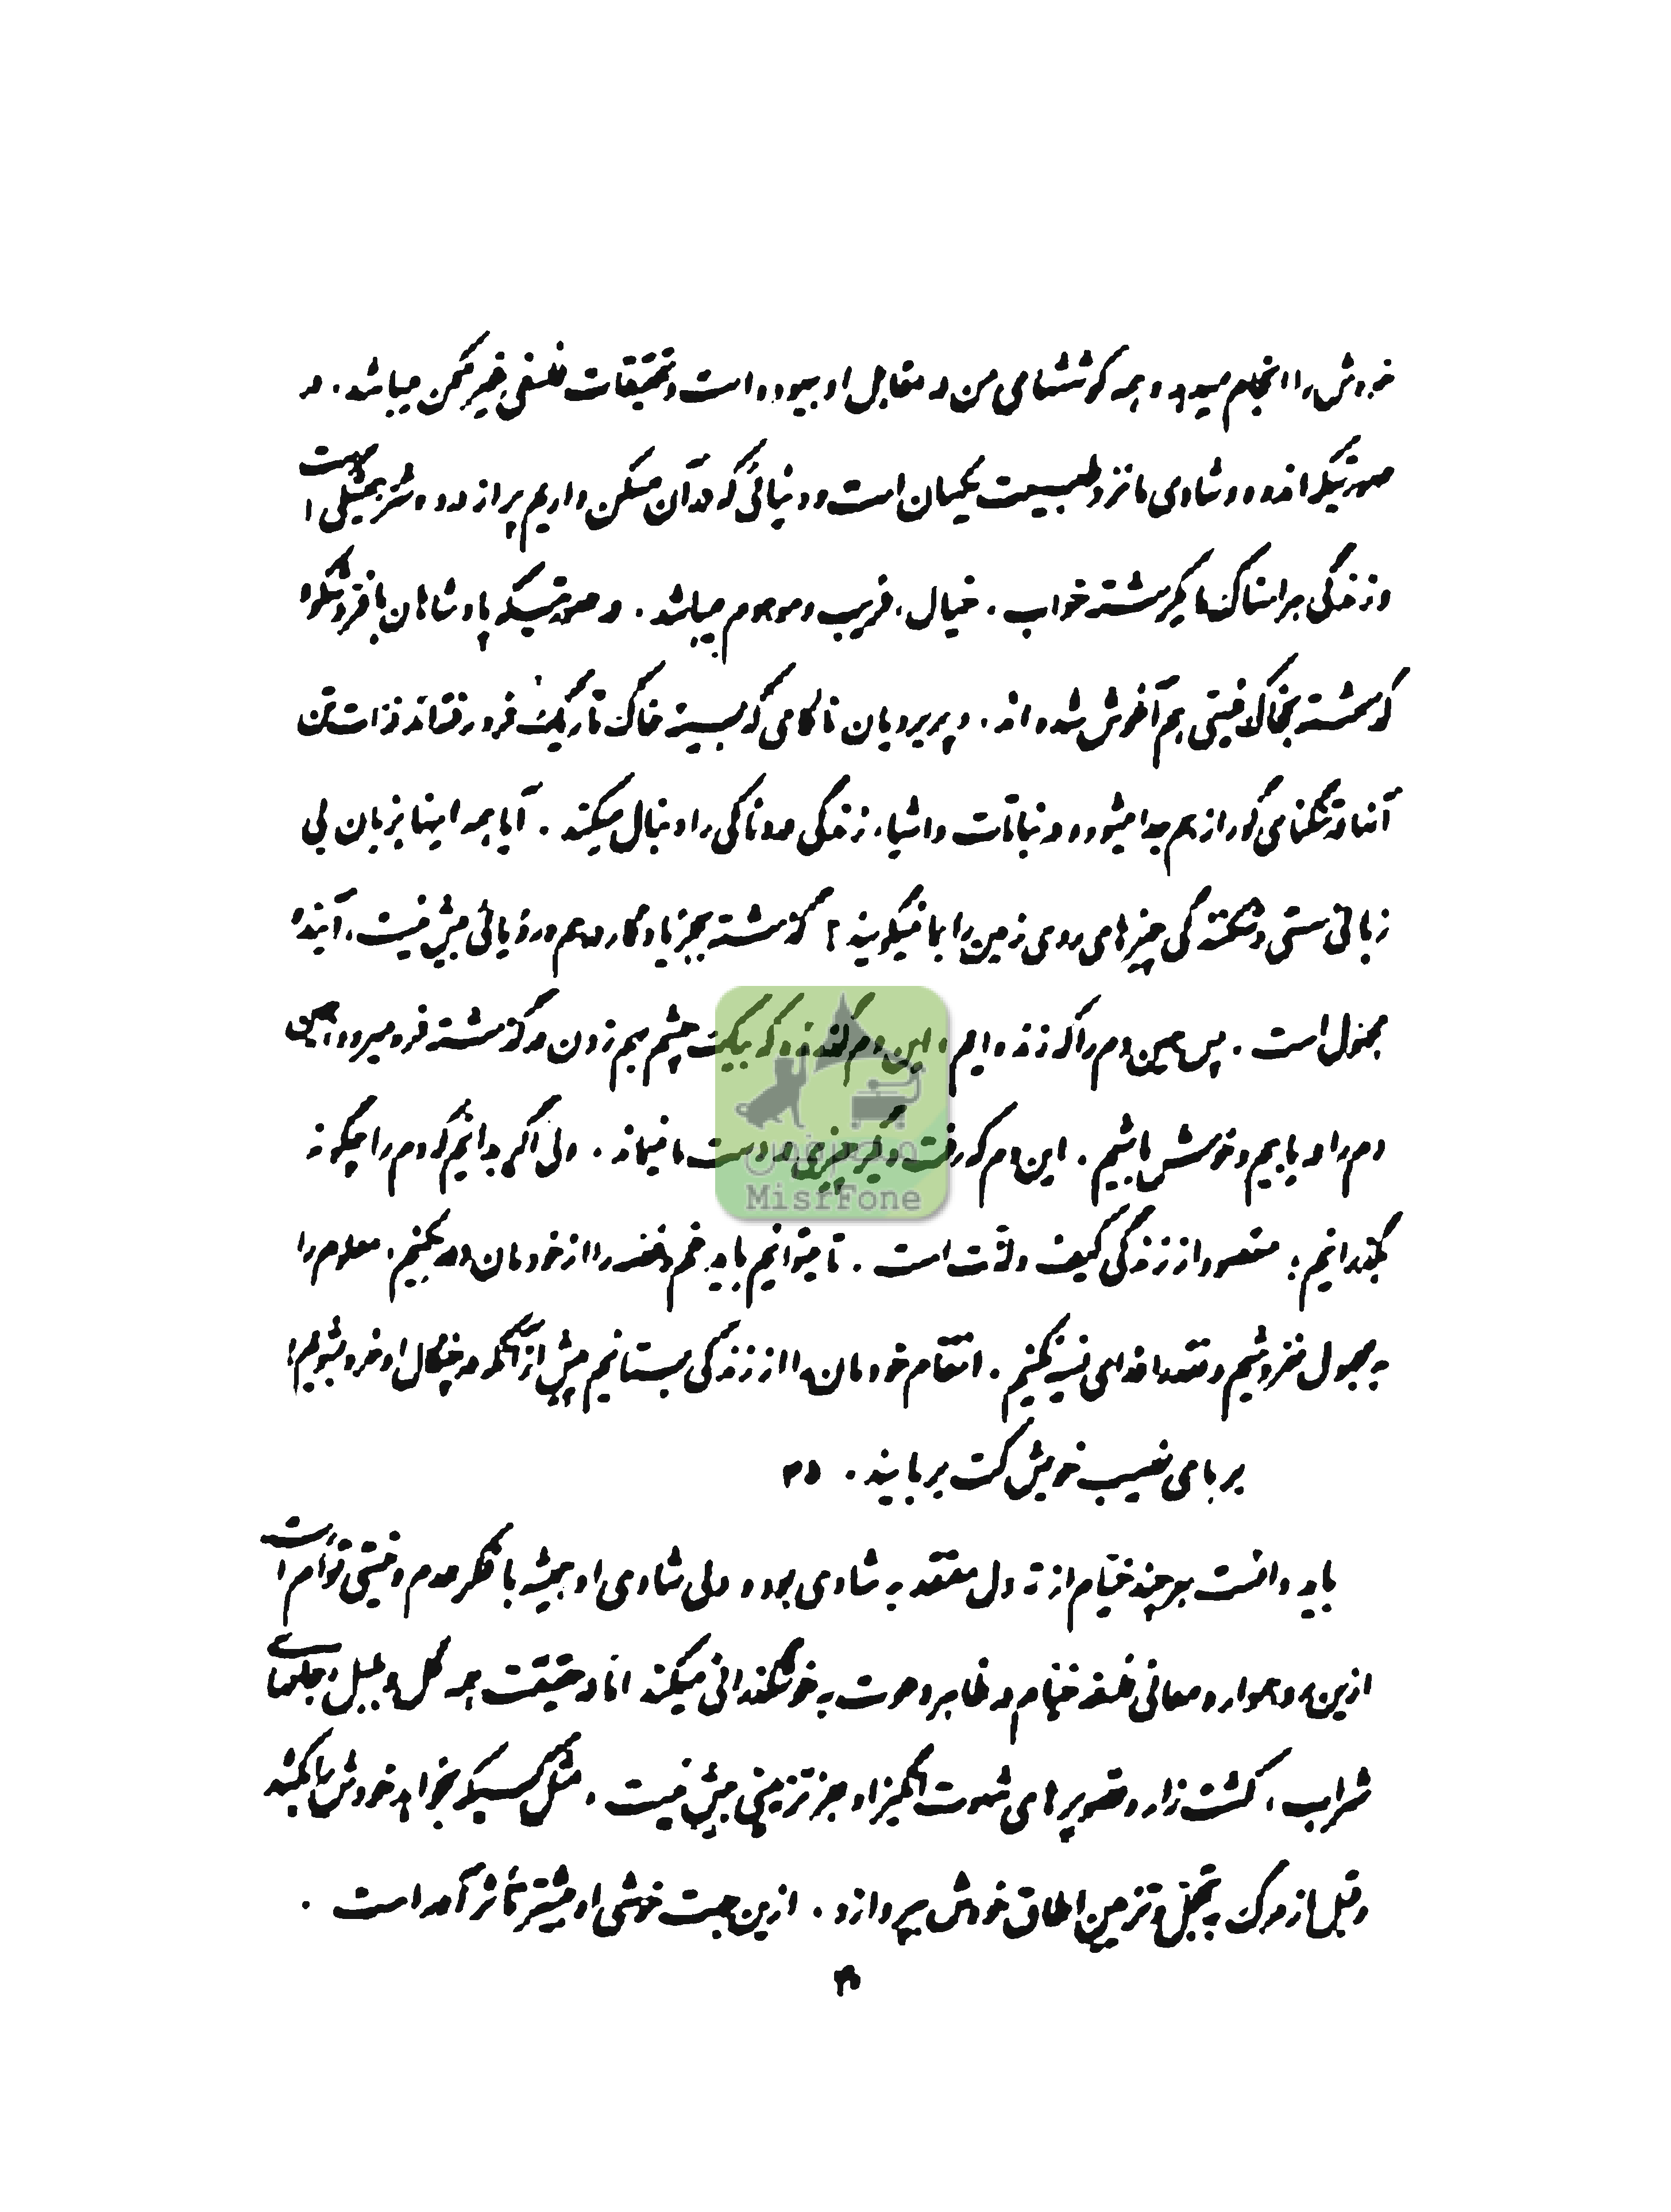 خودش را انجام میدهد و همه کوششهای من در مقابل او بیهوده است و تحقیقات فلسفی غیر ممکن میباشد. در
صورتیکه اندوه و شادی ما نزد طبیعت یکسان است و دنیائی که در آن مسکن داریم پر از درد و شر همیشگی است
و زندگی هراسناک ما یکرشته خواب، خیال، فریب و موهوم میباشد. در صورتیکه پادشاهان بافر و شکوه
گذشته بخاک نیستی هم آغوش شده‌اند، و پریرویان ناکامی که بسینه خاک تاریک فرو رفته‌اند ذرات تن
آنها در تنگنای گور از هم جدا میشود و در نباتات و اشیاء زندگی دردناکی را دنبال میکند. آیا همه اینها بزبان بی
زبانی سستی و شکستگی چیزهای روی زمین را بما نمیگویند؟ گذشته بجز یادگار درهم و رؤیائی بیش نیست، آینده
مجهول است. پس همین دم را که زنده‌ایم، این دم گذرنده که بیک چشم بهم زدن در گذشته فرو میرود، همین
دم را دریابیم و خوش باشیم. این دم که رفت دیگر چیزی در دست ما نمیماند. ولی اگر بدانیم که دم را چگونه
بگذرانیم؛ مقصود از زندگی کیف و لذت است. تا میتوانیم باید غم و غصه را از خودمان دور بکنیم، معلوم را
به مجهول نفروشیم و نقد را فدای نسیه نکنیم. انتقام خودمان را از زندگی بستانیم پیش از آنکه در چنگال او خرد بشویم!
بربای نصیب خویش کت بربایند. ۳۵
باید دانست هر چند خیام از ته دل معتقد به شادی بوده ولی شادی او همیشه با فکر عدم و نیستی توأم است
ازین رو همواره معانی فلسفه خیام در ظاهر دعوت به خوشگذرانی میکند اما در حقیقت همه گل و بلبل، جامهای
شراب، کشت‌زار و تصویرهای شهوت‌انگیز او جز تزیینی بیش نیست، مثل کسیکه بخواهد خودش را بکشد
و قبل از مرگ به تجمل و تزیین اطاق خودش بپردازد. ازین جهت خوشی او بیشتر تأثرآور است.
مصرفون
MisrFone